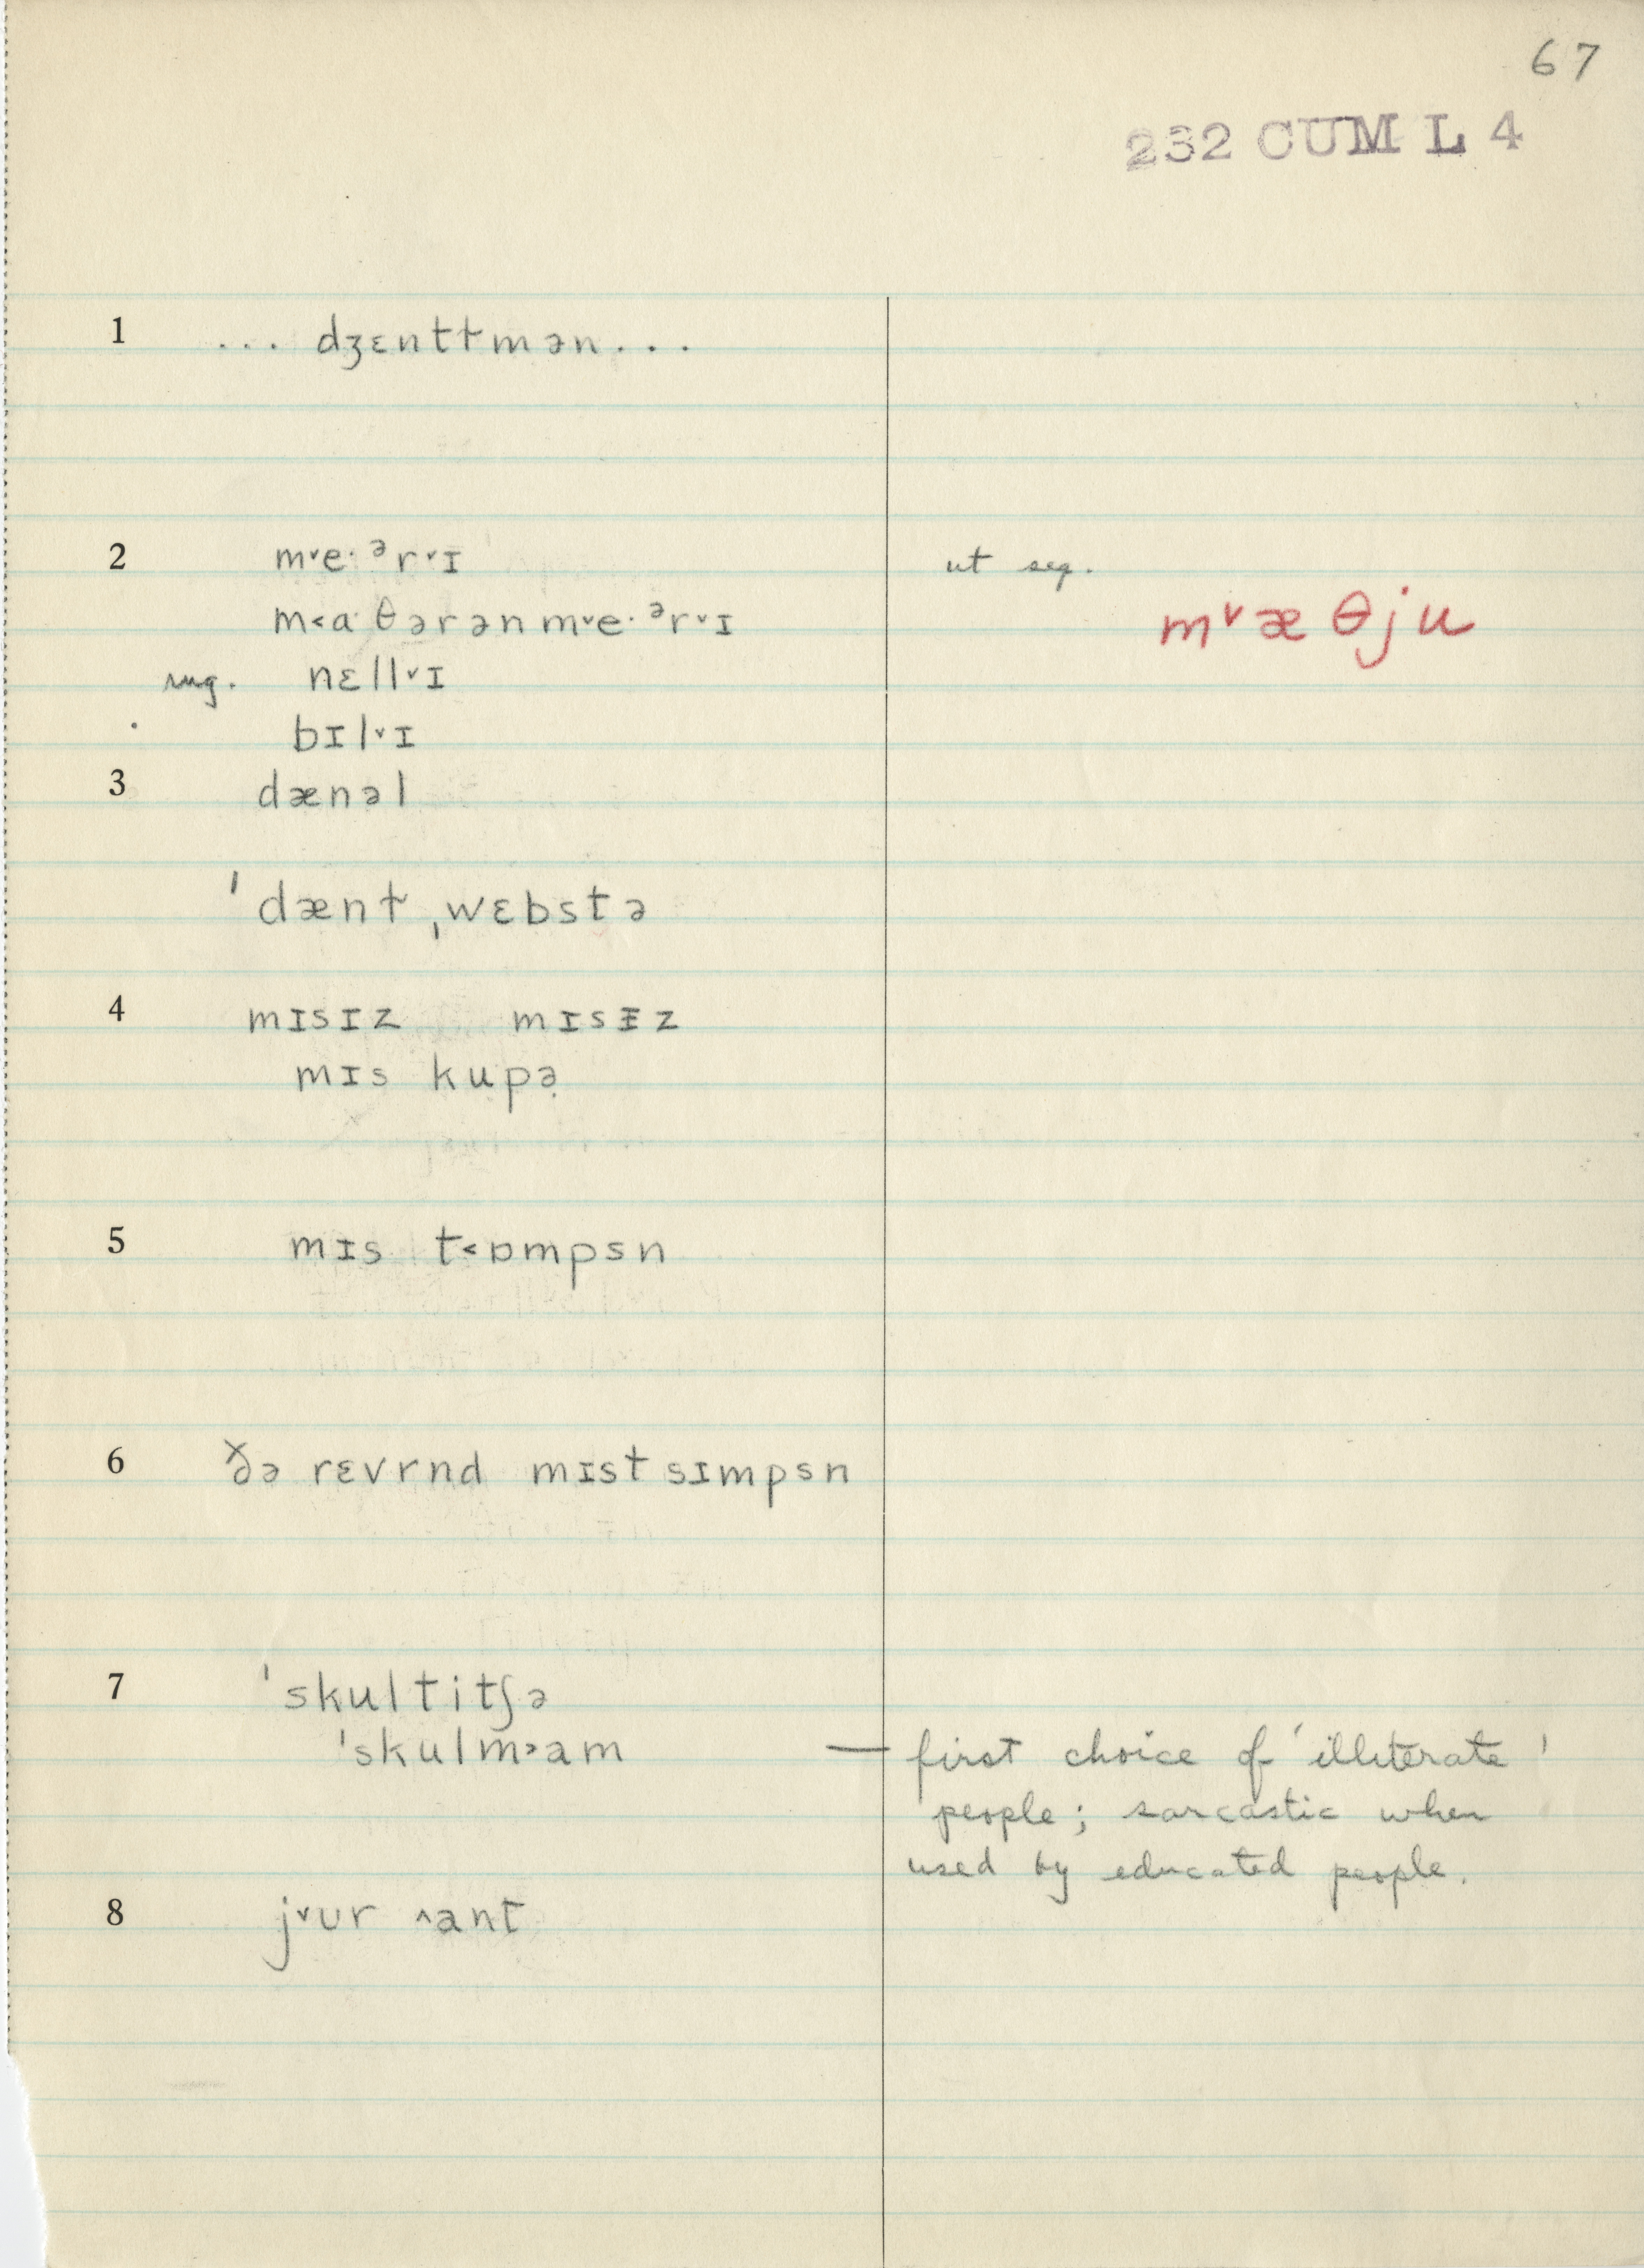 67
232 CUM L 4
1 ... dʒɛntɫmən...
2 m˅e·ᵊr˅ɪ ut seq.
m˂a·θərənm˅e·ᵊr˅ɪ m˅æθju
sug. nɛll˅ɪ
bɪl˅ɪ
3 dænəl
ˈdænɫ ˌwɛbstə
4 mɪsɪz mɪsɪ̵z
mɪs kupə̣
5 mɪs t˂ɒmpsn
6 ðə rɛvrnd mɪst sɪmpsn
7 ˈskultitʃə
ˈskulm˃am — first choice of 'illiterate'
people; sarcastic when
used by educated people.
8 j˅ʊr ˄ant